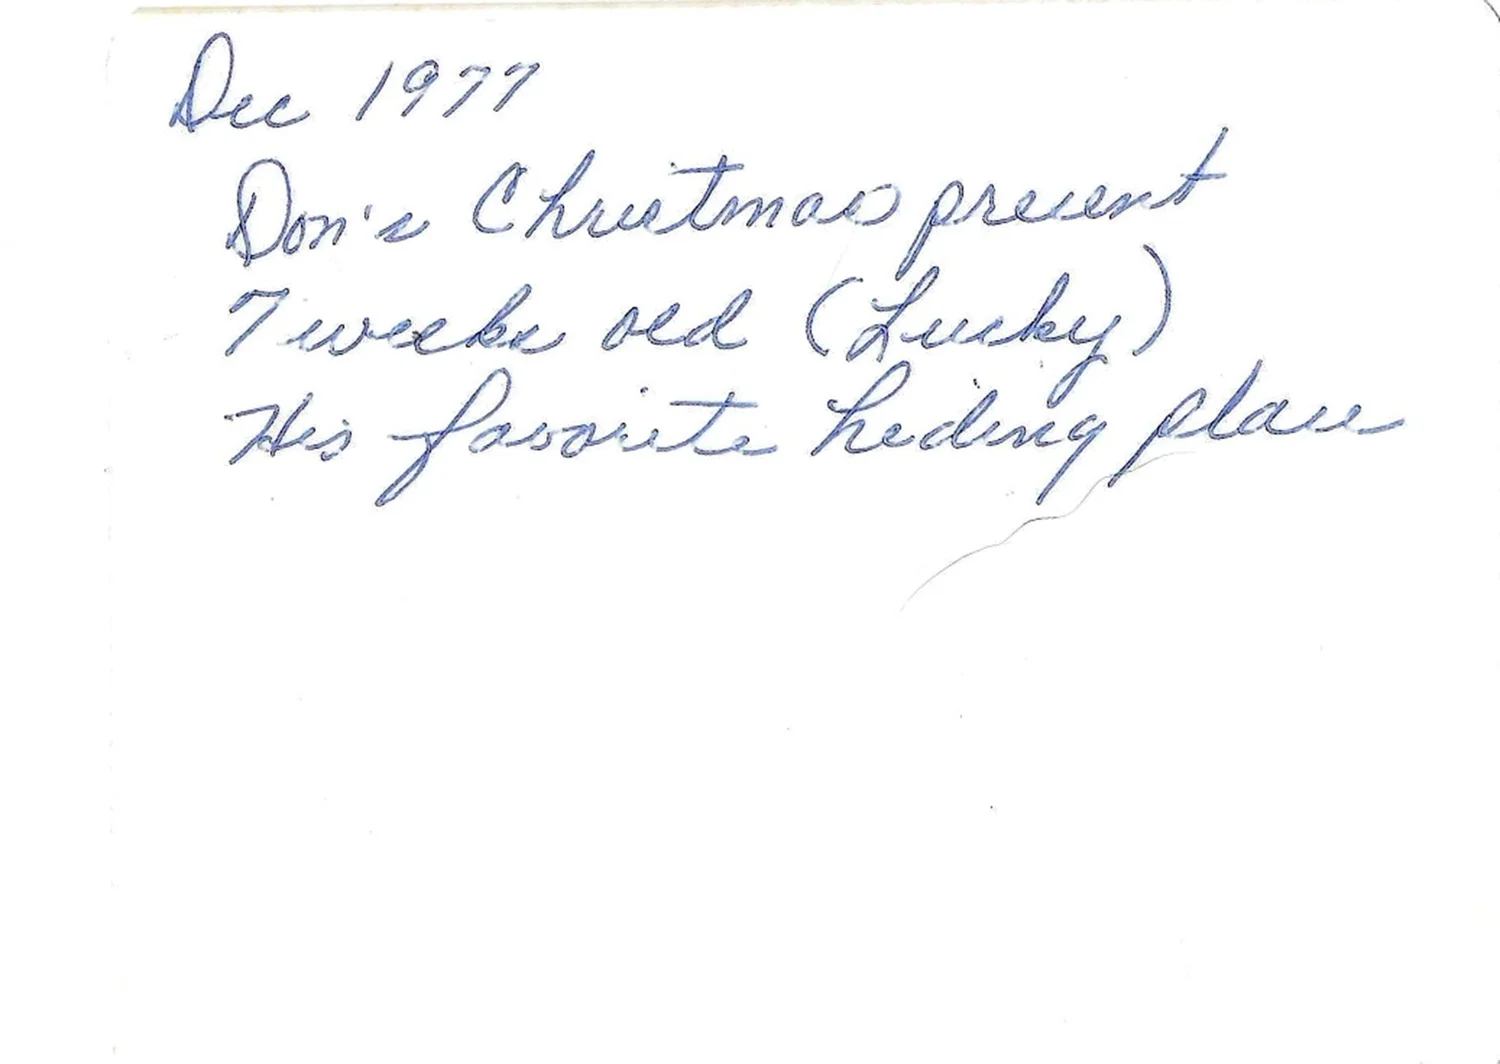 Dec 1977
Don's Christmas present
7 weeks old (Lucky)
His favorite hiding place